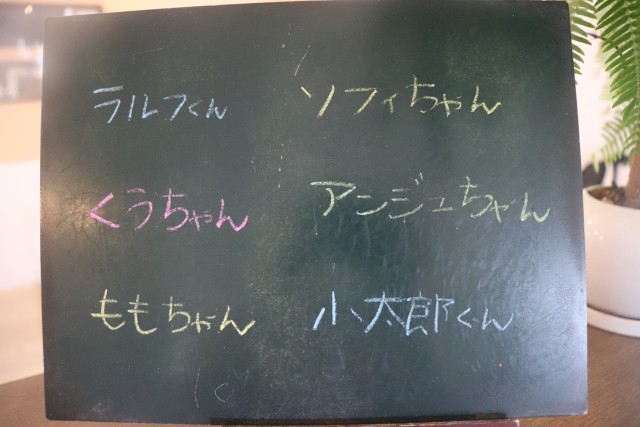 ラルフくん
ソフィちゃん
くうちゃん
アンジュちゃん
ももちゃん
小太郎くん